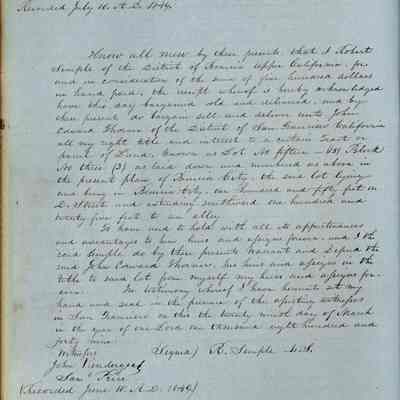 Recorded July 11. A.D. 1849.
Know all men by these presents, that I Robert
Semple of the District of Benicia Upper California, for
and in consideration of the sum of five hundred dollars
in hand paid, the receipt whereof is hereby acknowledged
have this day bargained sold and delivered, and by
these presents do bargain sell and deliver unto John
Edward of the District of San Francisco California
all my right title and interest to a certain tract or
parcel of Land, known as Lot No fifteen (15) Block
No three (3) as laid down and numbered as above in
the present plan of Benicia City, the said lot lying
and being in Benicia City, one hundred and fifty feet on
D. Street and extending southward one hundred and
twenty five feet to an alley
To have and to hold with all its appurtenances
and advantages to him, heirs and assigns forever and I the
said Semple do by these presents warrant and Defend the
said John Edward his heirs and assigns in the
title to said lot from myself my heirs and assigns for-
ever. In testimony whereof I have hereunto set my
hand and seal in the presence of the
in San Francisco on this the twenty ninth day of March
in the year of our Lord one thousand eight hundred and
forty nine.
Witnesses Signed R. Semple
John
Saml Price
(Recorded June 11. A.D. 1849)